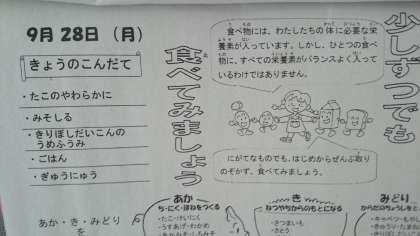 9月 28日 (月)
きょうのこんだて
・たこのやわらかに
・みそしる
・きりぼしだいこんの
うめふうみ
・ごはん
・ぎゅうにゅう
少しずつでも
食べてみましょう
食べ物には、わたしたちの体に必要な栄
養素が入っています。しかし、ひとつの食べ
物に、すべての栄養素がバランスよく入って
いるわけではありません。
にがてなものでも、はじめからぜんぶ取り
のぞかず、食べてみましょう。
あか・き・みどり
を
あか
ち・にく・ほねをつくる
・たこ・けいにく
・うすあげ・わかめ
き
ねつやちからのもとになる
・さつまいも
・さとう
みどり
からだのちょうしを
・キャベツ・もやし